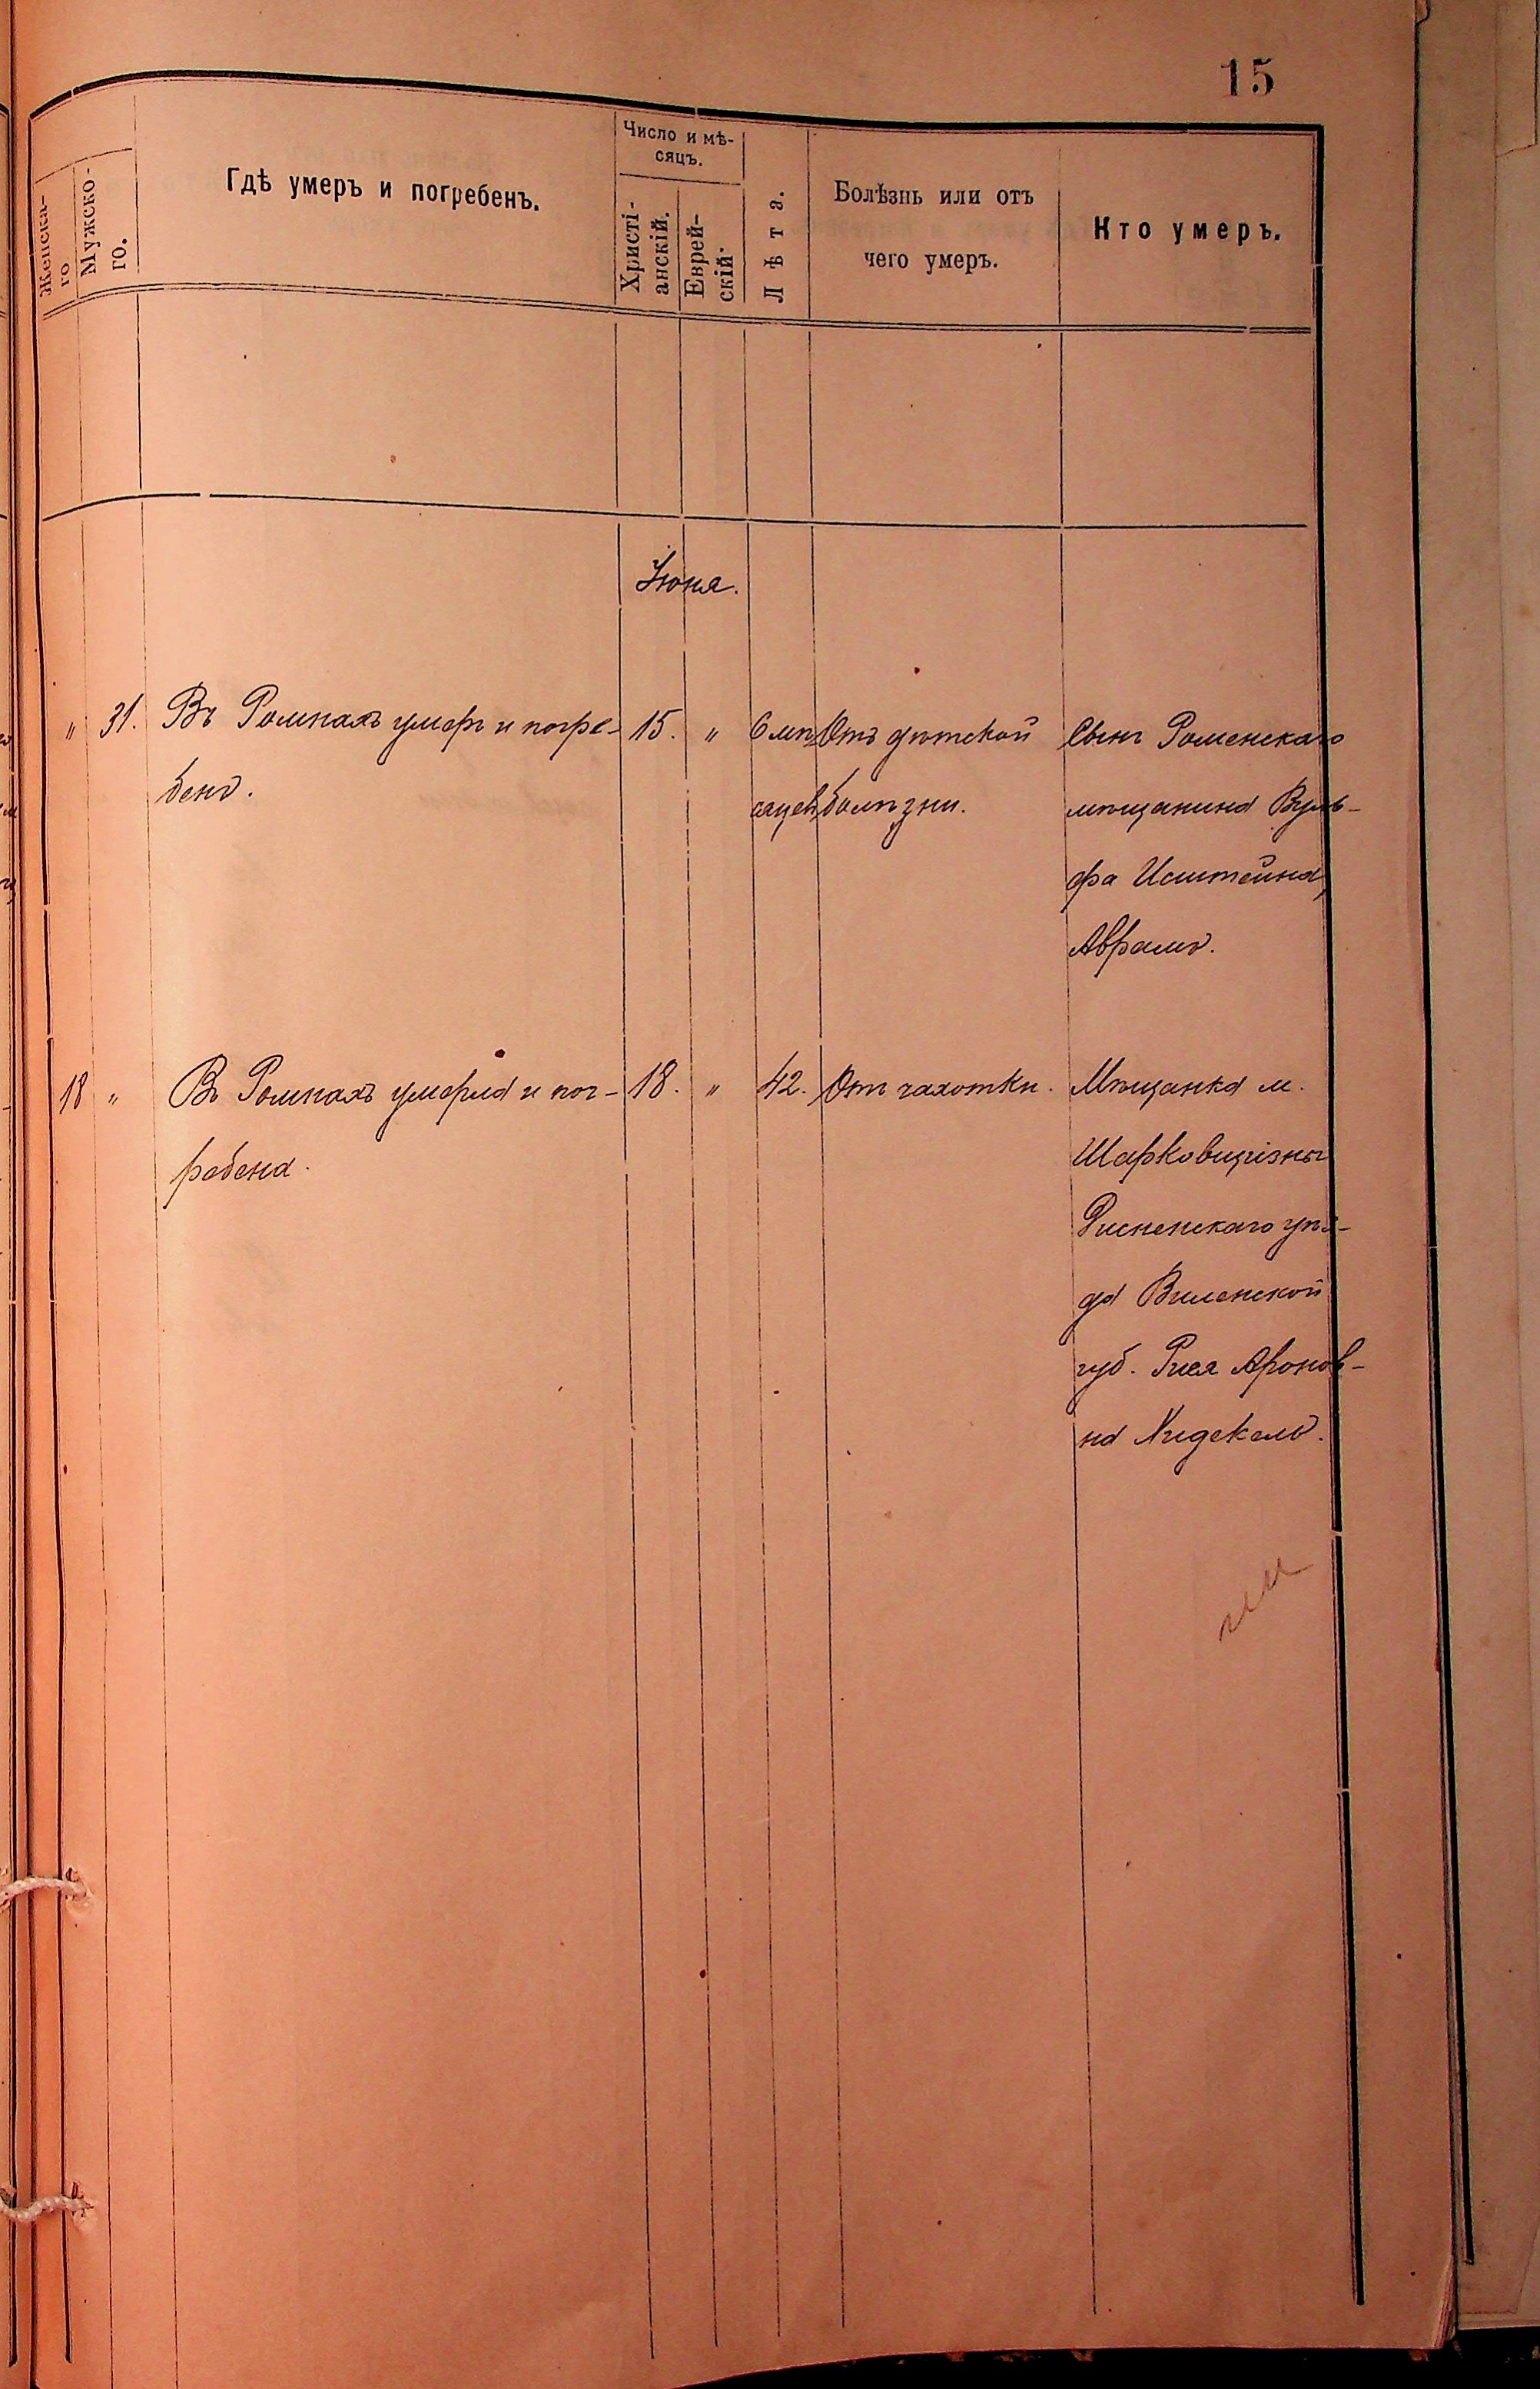 15
Женска-
го
Мужско-
го.
Гдѣ умеръ и погребенъ.
Число и мѣ-
сяцъ.
Христі-
анскій.
Еврей-
скій.
Лѣта.
Болѣзнь или отъ
чего умеръ.
Кто умеръ.
Іюня.
" 31. Въ Ромнахъ умеръ и погре- 15. " 6 мѣ- Отъ дѣтской Сынъ Роменскаго
бенъ. сяцев болѣзни. мѣщанина Вуль-
фа Исштейна,
Аврамъ.
18 " Въ Ромнахъ умерла и пог- 18. " 42. Отъ чахотки. Мѣщанка м.
ребена. Шарковщизны
Дисненскаго уѣз-
да Виленской
губ. Рися Аронов-
на Хидекель.